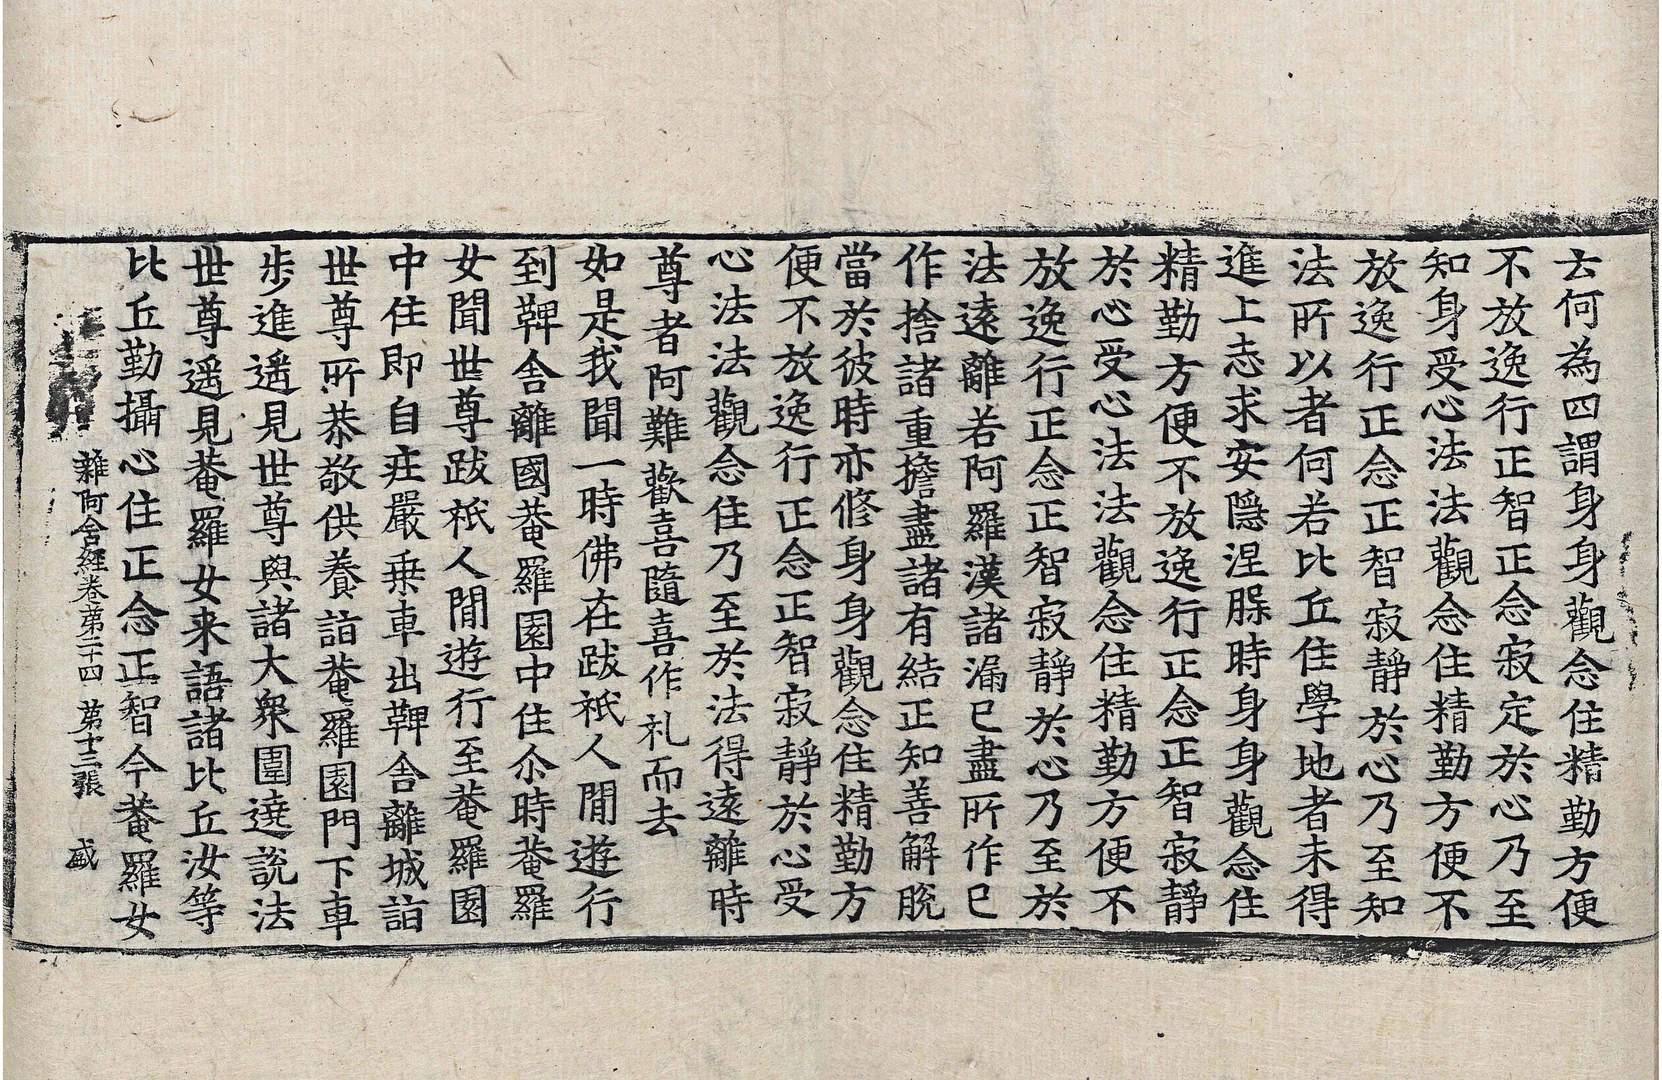 云何為四謂身身觀念住精勤方便
不放逸行正智正念寂定於心乃至
知身受心法法觀念住精勤方便不
放逸行正念正智寂靜於心乃至知
法所以者何若比丘住學地者未得
進上志求安隱涅脲時身身觀念住
精勤方便不放逸行正念正智寂靜
於心受心法法觀念住精勤方便不
放逸行正念正智寂靜於心乃至於
法遠離若阿羅漢諸漏已盡所作已
作捨諸重擔盡諸有結正知善解脫
當於彼時亦修身身觀念住精勤方
便不放逸行正念正智寂靜於心受
心法法觀念住乃至於法得遠離時
尊者阿難歡喜隨喜作礼而去
如是我聞一時佛在跋祇人間遊行
到鞞舍離國菴羅園中住尒時菴羅
女聞世尊跋祇人間遊行至菴羅園
中住即自庄嚴乗車出鞞舍離城詣
世尊所恭敬供養詣菴羅園門下車
步進遥見世尊與諸大衆圍遶說法
世尊遥見菴羅女来語諸比丘汝等
比丘勤攝心住正念正智今菴羅女
雜阿含經卷第二十四 第十三張 盛